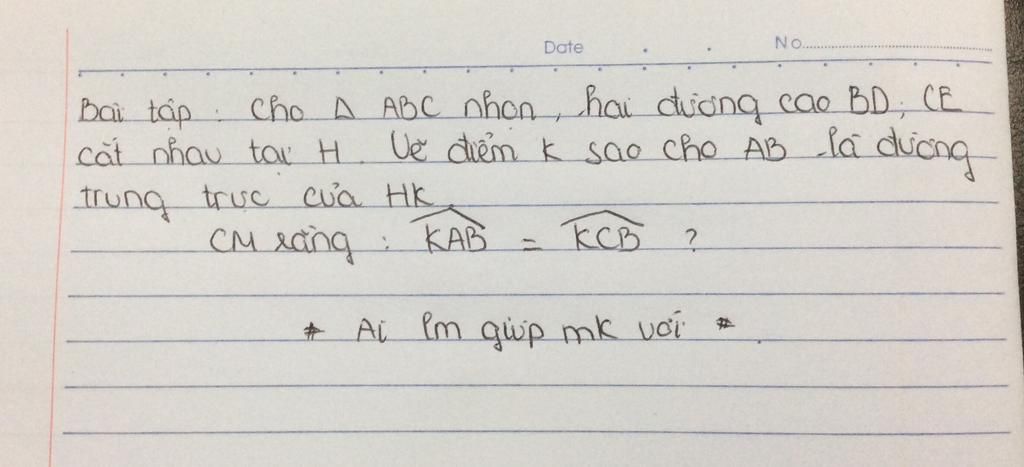 Date . . No.
Bài tập : Cho Δ ABC nhọn, hai đường cao BD, CE
cắt nhau tại H. Vẽ điểm K sao cho AB là đường
trung trực của HK.
CM rằng : KAB = KCB ?
* Ai lm giúp mk với *.